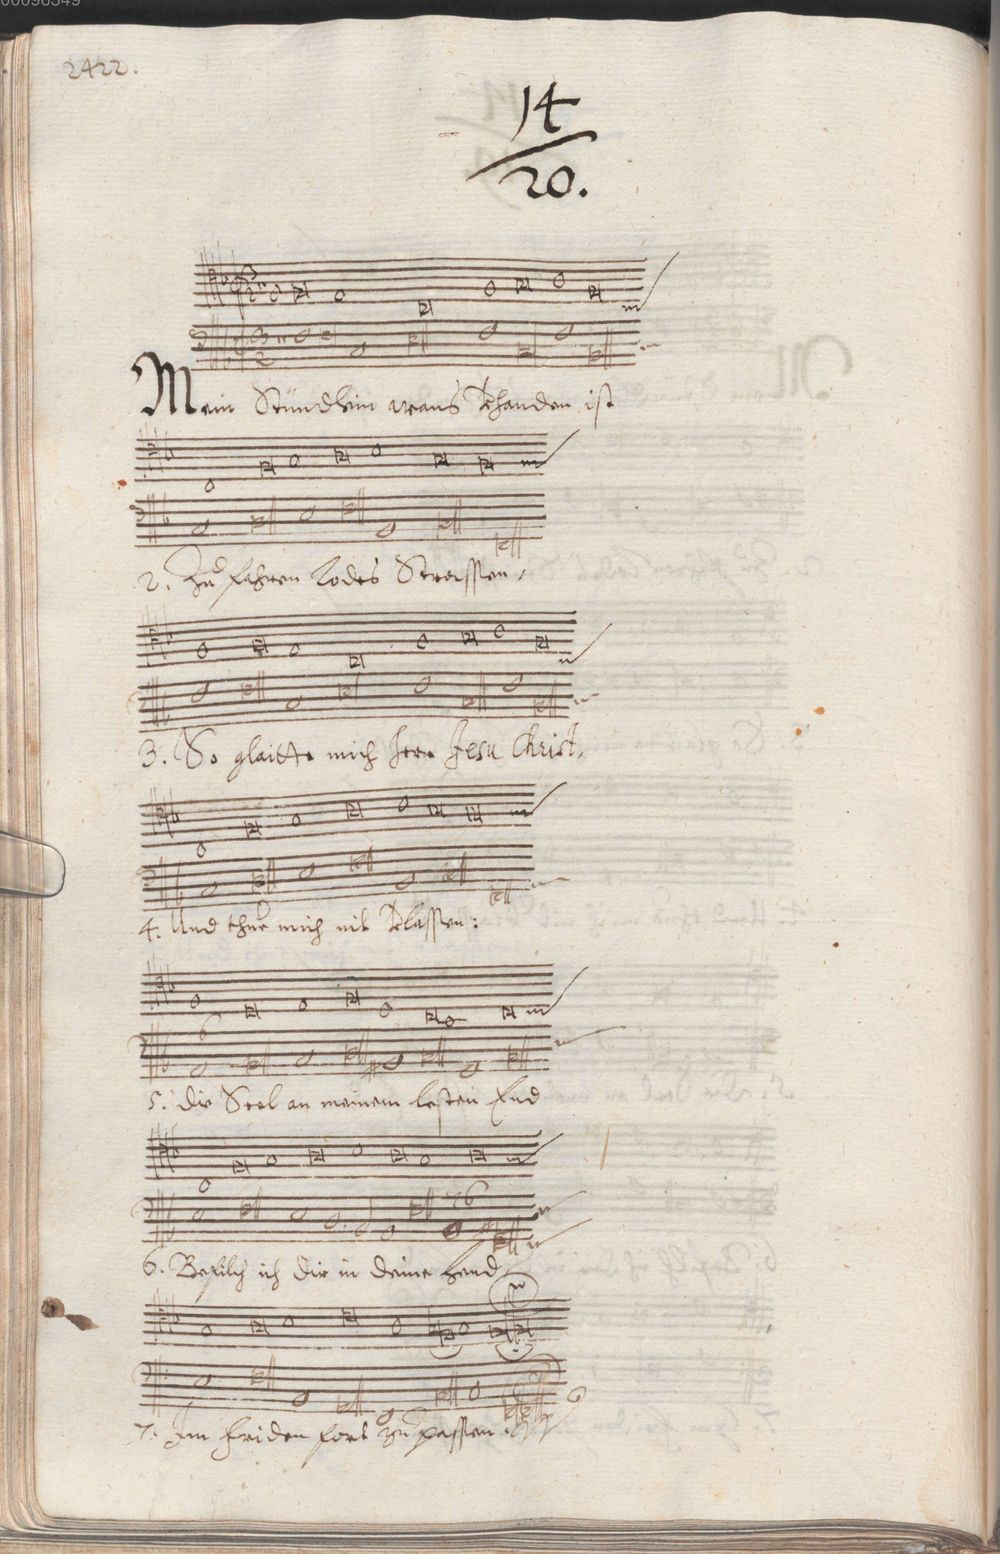 00096349
2422.
14
20.
Mein Stündlein vorhanden ist
2. Zu fahren Todes Strassen,
3. So glaitte mich Herr Jesu Christ,
4. Und thue mich nit Verlassen:
5. Die Seel an meinem lesten End
6. Befilch ich dir in deine Hend
7. Im friden fort zu passen.